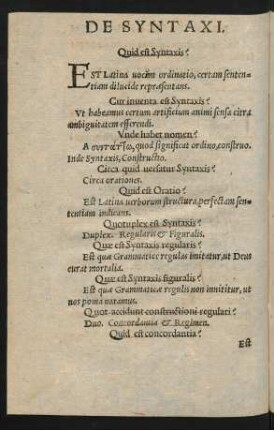 DE SYNTAXI.
Quid est Syntaxis?
EST Latina uocũm ordinatio, certam senten-
tiam dilucide repræsentans.
Cur inuenta est Syntaxis?
Vt habeamus certum artificium animi sensa citra
ambiguitatem efferendi.
Vnde habet nomen?
A συντάττω, quod significat ordino, construo.
Inde Syntaxis, Constructio.
Circa quid uersatur Syntaxis?
Circa orationes.
Quid est Oratio?
Est Latina uerborum structura, perfectam sen-
tentiam indicans.
Quotuplex est Syntaxis?
Duplex. Regularis & Figuralis.
Quæ est Syntaxis regularis?
Est quæ Grammaticæ regulas imitatur, ut Deus
curat mortalia.
Quæ est Syntaxis figuralis?
Est quæ Grammaticæ regulis non innititur, ut
nos poma natamus.
Quot accidunt constructioni regulari?
Duo. Concordantia & Regimen.
Quid est concordantia?
Est